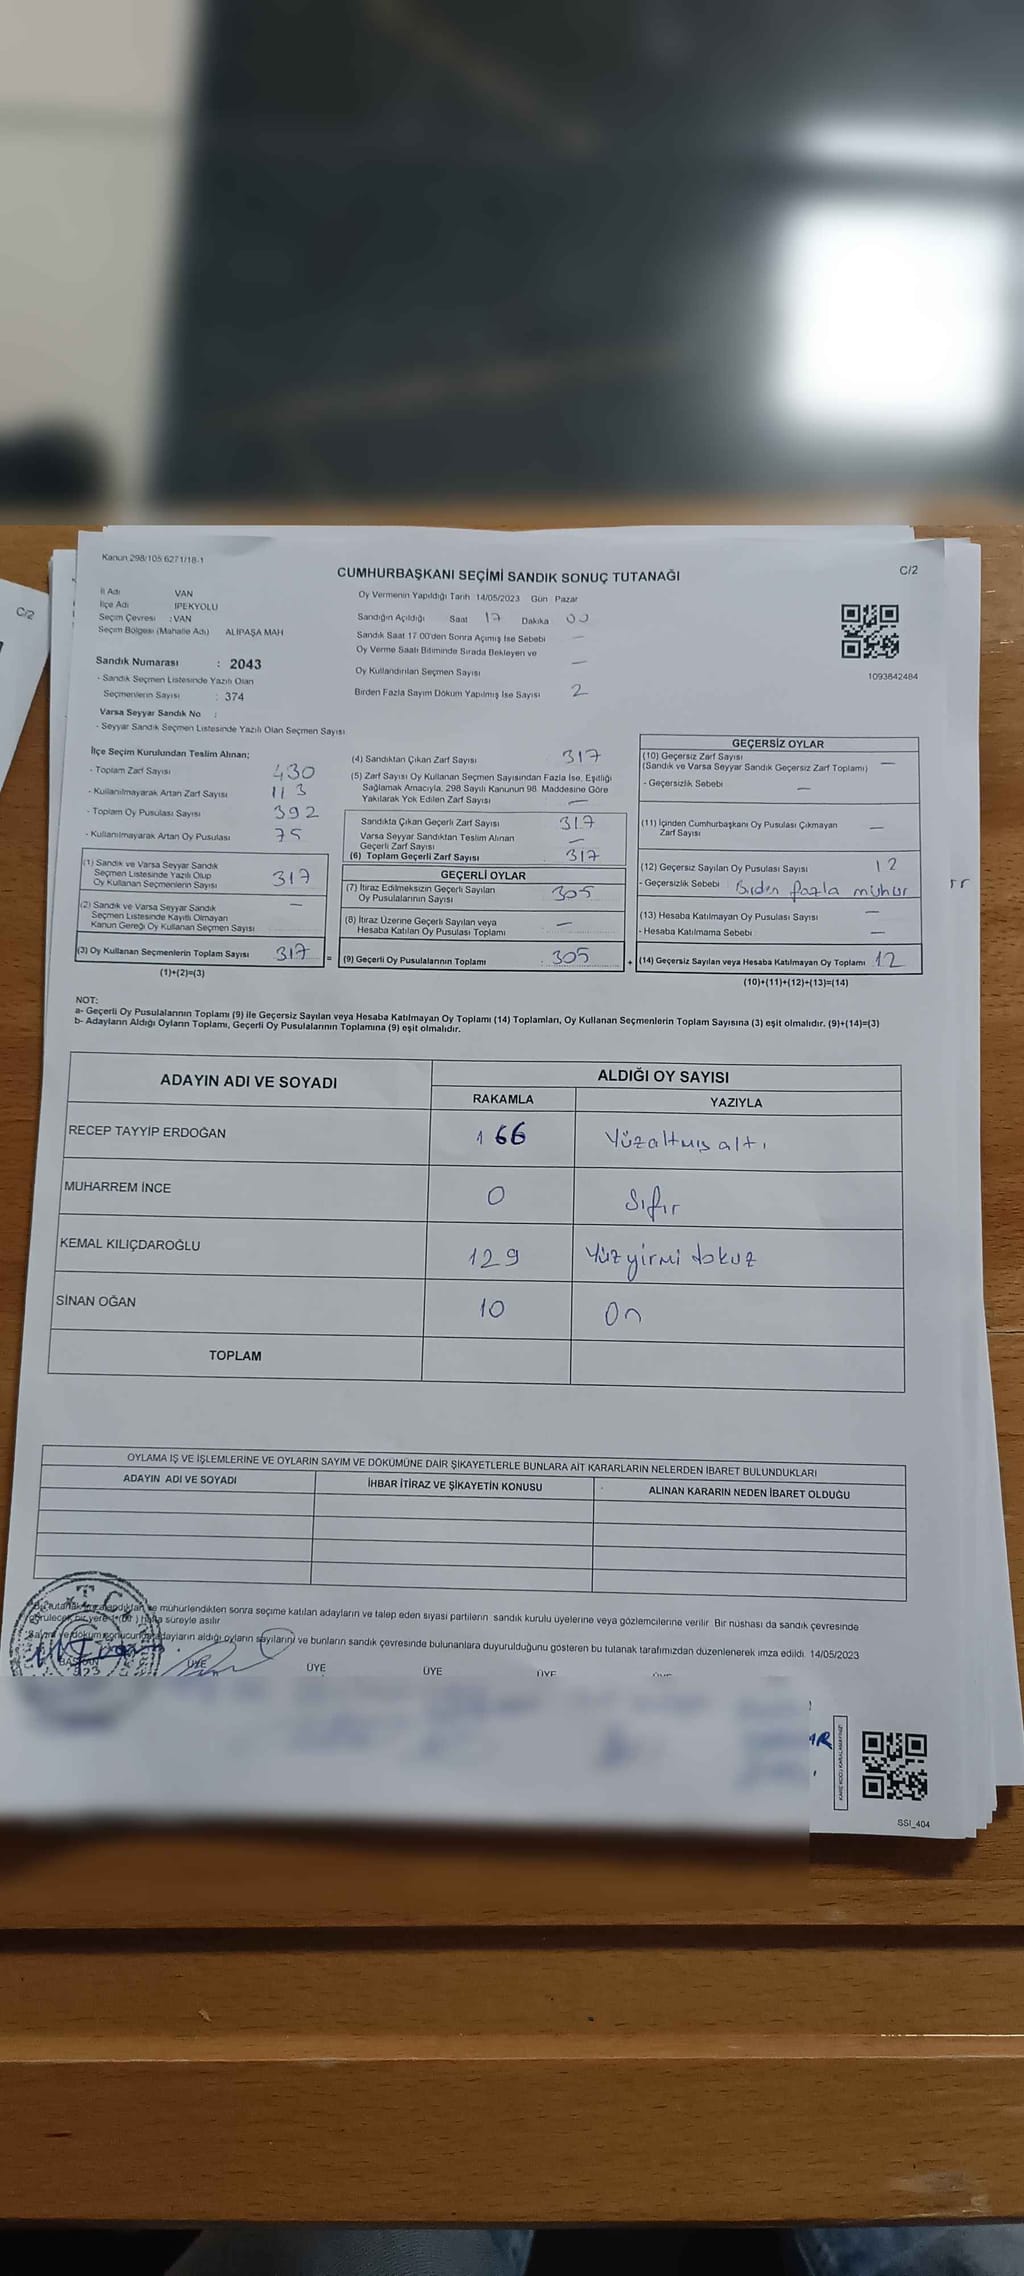 C/2
Kanun 298/105 6271/18-1
CUMHURBAŞKANI SEÇİMİ SANDIK SONUÇ TUTANAĞI
C/2
İl Adı VAN
İlçe Adı İPEKYOLU
Seçim Çevresi : VAN
Seçim Bölgesi (Mahalle Adı) ALİPAŞA MAH
Sandık Numarası : 2043
- Sandık Seçmen Listesinde Yazılı Olan
Seçmenlerin Sayısı : 374
Varsa Seyyar Sandık No :
- Seyyar Sandık Seçmen Listesinde Yazılı Olan Seçmen Sayısı
Oy Vermenin Yapıldığı Tarih 14/05/2023 Gün Pazar
Sandığın Açıldığı Saat 17 Dakika 00
Sandık Saat 17 00'den Sonra Açımış İse Sebebi —
Oy Verme Saati Bitiminde Sırada Bekleyen ve
Oy Kullandırılan Seçmen Sayısı —
Birden Fazla Sayım Döküm Yapılmış İse Sayısı 2
1093642484
İlçe Seçim Kurulundan Teslim Alınan;
- Toplam Zarf Sayısı 430
- Kullanılmayarak Artan Zarf Sayısı 113
- Toplam Oy Pusulası Sayısı 392
- Kullanılmayarak Artan Oy Pusulası 75
(1) Sandık ve Varsa Seyyar Sandık
Seçmen Listesinde Yazılı Olup
Oy Kullanan Seçmenlerin Sayısı 317
(2) Sandık ve Varsa Seyyar Sandık
Seçmen Listesinde Kayıtlı Olmayan
Kanun Gereği Oy Kullanan Seçmen Sayısı —
(3) Oy Kullanan Seçmenlerin Toplam Sayısı 317 =
(1)+(2)=(3)
(4) Sandıktan Çıkan Zarf Sayısı 317
(5) Zarf Sayısı Oy Kullanan Seçmen Sayısından Fazla İse, Eşitliği
Sağlamak Amacıyla, 298 Sayılı Kanunun 98. Maddesine Göre
Yakılarak Yok Edilen Zarf Sayısı —
Sandıkta Çıkan Geçerli Zarf Sayısı 317
Varsa Seyyar Sandıktan Teslim Alınan
Geçerli Zarf Sayısı —
(6) Toplam Geçerli Zarf Sayısı 317
GEÇERLİ OYLAR
(7) İtiraz Edilmeksizin Geçerli Sayılan
Oy Pusulalarının Sayısı 305
(8) İtiraz Üzerine Geçerli Sayılan veya
Hesaba Katılan Oy Pusulası Toplamı —
(9) Geçerli Oy Pusulalarının Toplamı : 305 +
GEÇERSİZ OYLAR
(10) Geçersiz Zarf Sayısı —
(Sandık ve Varsa Seyyar Sandık Geçersiz Zarf Toplamı)
- Geçersizlik Sebebi —
(11) İçinden Cumhurbaşkanı Oy Pusulası Çıkmayan
Zarf Sayısı —
(12) Geçersiz Sayılan Oy Pusulası Sayısı 12
- Geçersizlik Sebebi Birden fazla mühür
(13) Hesaba Katılmayan Oy Pusulası Sayısı —
- Hesaba Katılmama Sebebi —
(14) Geçersiz Sayılan veya Hesaba Katılmayan Oy Toplamı 12
(10)+(11)+(12)+(13)=(14)
NOT:
a- Geçerli Oy Pusulalarının Toplamı (9) ile Geçersiz Sayılan veya Hesaba Katılmayan Oy Toplamı (14) Toplamları, Oy Kullanan Seçmenlerin Toplam Sayısına (3) eşit olmalıdır. (9)+(14)=(3)
b- Adayların Aldığı Oyların Toplamı, Geçerli Oy Pusulalarının Toplamına (9) eşit olmalıdır.
ADAYIN ADI VE SOYADI ALDIĞI OY SAYISI
RAKAMLA YAZIYLA
RECEP TAYYİP ERDOĞAN 166 Yüzaltmış altı
MUHARREM İNCE 0 Sıfır
KEMAL KILIÇDAROĞLU 129 Yüzyirmi dokuz
SİNAN OĞAN 10 On
TOPLAM
OYLAMA İŞ VE İŞLEMLERİNE VE OYLARIN SAYIM VE DÖKÜMÜNE DAİR ŞİKAYETLERLE BUNLARA AİT KARARLARIN NELERDEN İBARET BULUNDUKLARI
ADAYIN ADI VE SOYADI İHBAR İTİRAZ VE ŞİKAYETİN KONUSU ALINAN KARARIN NEDEN İBARET OLDUĞU
ve mühürlendikten sonra seçime katılan adayların ve talep eden siyasi partilerin sandık kurulu üyelerine veya gözlemcilerine verilir Bir nüshası da sandık çevresinde
görülecek bir yere 1 (bir) hafta süreyle asılır
adayların aldığı oyların sayılarını ve bunların sandık çevresinde bulunanlara duyurulduğunu gösteren bu tutanak tarafımızdan düzenlenerek imza edildi 14/05/2023
T.C.
BAŞKAN ÜYE ÜYE ÜYE ÜYE ÜYE
SSI_404